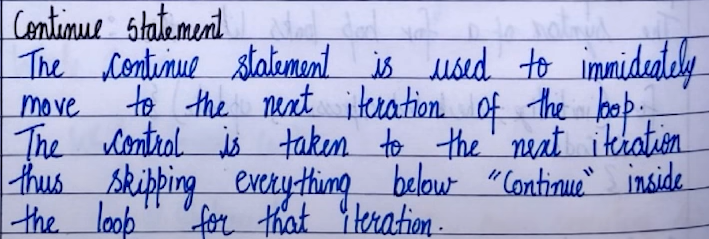 Continue Statement
The continue statement is used to immideately
move to the next iteration of the loop.
The control is taken to the next iteration
thus skipping everything below "Continue" inside
the loop for that iteration.